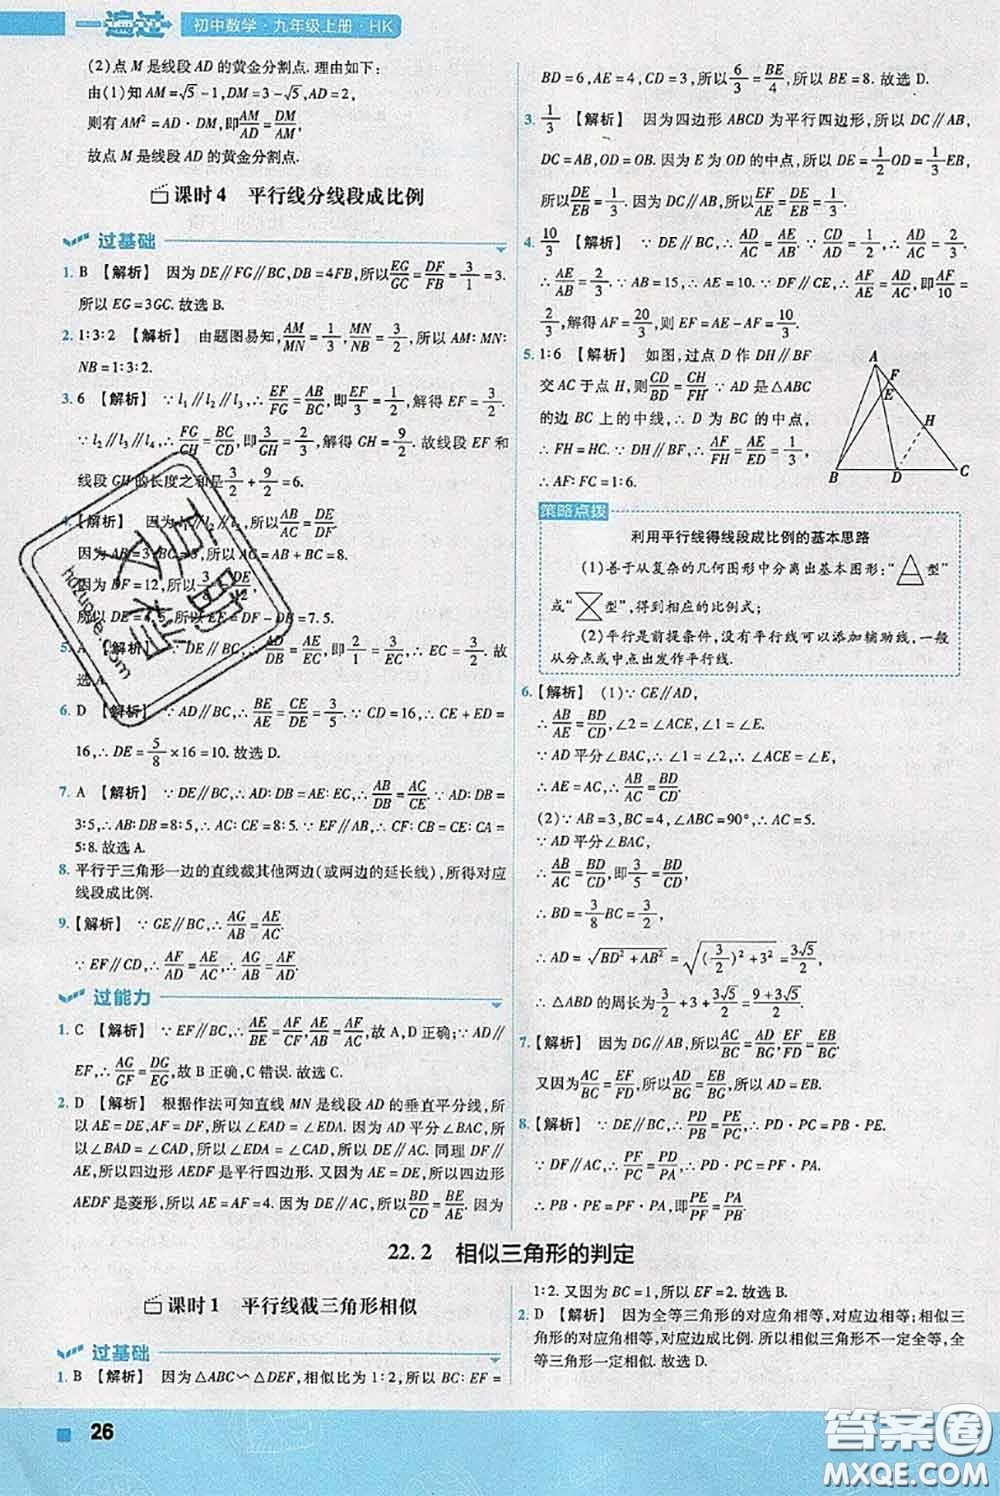 一遍过 初中数学·九年级上册·HK
(2)点 M 是线段 AD 的黄金分割点. 理由如下:
由(1)知 AM=√5-1, DM=3-√5, AD=2,
则有 AM²=AD·DM, 即AM/AD=DM/AM,
故点 M 是线段 AD 的黄金分割点.
课时4 平行线分线段成比例
过基础
1. B 【解析】 因为 DE∥FG∥BC, DB=4FB, 所以EG/GC=DF/FB=3/1=3.
所以 EG=3GC. 故选 B.
2. 1:3:2 【解析】 由题图易知, AM/MN=1/3, MN/NB=3/2, 所以 AM:MN:
NB=1:3:2.
3. 6 【解析】 ∵l₁∥l₂∥l₃, ∴EF/FG=AB/BC, 即EF/3=1/2, 解得 EF=3/2.
∵l₂∥l₃∥l₄, ∴FG/GH=BC/CD, 即3/GH=2/3, 解得 GH=9/2. 故线段 EF 和
线段 GH 的长度之和是3/2+9/2=6.
4. 【解析】 因为 l₁∥l₂∥l₃, 所以AB/BC=DE/EF.
因为 AB=3, BC=5, 所以 AC=AB+BC=8.
因为 DF=12, 所以
所以 DE=4.5, 所以 EF=DF-DE=7.5.
5. A 【解析】 ∵DE∥BC, ∴AD/DB=AE/EC, ∴AD/DB=AE/EC=3/2. 故
选 A.
6. D 【解析】 ∵AD∥BC, ∴BE/AE=CE/DE=3/5. ∵CD=16, ∴CE+ED=
16, ∴DE=5/8×16=10. 故选 D.
7. A 【解析】 ∵DE∥BC, ∴AD:DB=AE:EC, ∴AB/DB=AC/CE. ∵AD:DB=
3:5, ∴AB:DB=8:5, ∴AC:CE=8:5. ∵EF∥AB, ∴CF:CB=CE:CA=
5:8. 故选 A.
8. 平行于三角形一边的直线截其他两边(或两边的延长线), 所得对应
线段成比例.
9. 【解析】 ∵GE∥BC, ∴AG/AB=AE/AC.
∵EF∥CD, ∴AF/AD=AE/AC, ∴AG/AB=AF/AD.
过能力
1. C 【解析】 ∵EF∥BC, ∴AE/BE=AF/CF, AE/AB=AF/AC, 故 A, D 正确; ∵AD∥
EF, ∴AG/GF=DG/EG, 故 B 正确, C 错误. 故选 C.
2. D 【解析】 根据作法可知直线 MN 是线段 AD 的垂直平分线, 所
以 AE=DE, AF=DF, 所以∠EAD=∠EDA. 因为 AD 平分∠BAC, 所
以∠BAD=∠CAD, 所以∠EDA=∠CAD, 所以 DE∥AC. 同理 DF∥
AE, 所以四边形 AEDF 是平行四边形. 又因为 AE=DE, 所以四边形
AEDF 是菱形, 所以 AE=AF=4. 因为 DE∥AC, 所以BD/CD=BE/AE. 因为
BD=6, AE=4, CD=3, 所以6/3=BE/4, 所以 BE=8. 故选 D.
3. 1/3 【解析】 因为四边形 ABCD 为平行四边形, 所以 DC∥AB,
DC=AB, OD=OB. 因为 E 为 OD 的中点, 所以 DE=1/2OD=1/3EB,
所以DE/EB=1/3. 因为 DC∥AB, 所以EF/AE=DE/EB=1/3.
4. 10/3 【解析】 ∵DE∥BC, ∴AD/AC=AE/AB. ∵CD/AD=1/2, ∴AD/AC=2/3,
∴AE/AB=2/3. ∵AB=15, ∴AE=10. ∵DF∥CE, ∴AF/AE=AD/AC, 即AF/10=
2/3, 解得 AF=20/3, 则 EF=AE-AF=10/3.
5. 1:6 【解析】 如图, 过点 D 作 DH∥BF
交 AC 于点 H, 则CD/BD=CH/FH. ∵AD 是△ABC
的边 BC 上的中线, ∴D 为 BC 的中点,
∴FH=HC. ∵DH∥BF, ∴AF/FH=AE/ED=1/3,
∴AF:FC=1:6.
A
F
E
H
B
D
C
策略点拨
利用平行线得线段成比例的基本思路
(1)善于从复杂的几何图形中分离出基本图形: “ 型”
或“ 型”, 得到相应的比例式;
(2)平行是前提条件, 没有平行线可以添加辅助线, 一般
从分点或中点出发作平行线.
6. 【解析】 (1)∵CE∥AD,
∴AB/AE=BD/CD, ∠2=∠ACE, ∠1=∠E.
∵AD 平分∠BAC, ∴∠1=∠2,
∴∠ACE=∠E, ∴AE=AC, ∴AB/AC=BD/CD.
(2)∵AB=3, BC=4, ∠ABC=90°, ∴AC=5.
∵AD 平分∠BAC,
∴AB/AC=BD/CD, 即3/5=BD/CD,
∴BD=3/8BC=3/2,
∴AD=√(BD²+AB²)=√((3/2)²+3²)=3√5/2,
∴△ABD 的周长为3/2+3+3√5/2=(9+3√5)/2.
7. 【解析】 因为 DG∥AB, 所以AC/BC=AD/BG, EF/FD=EB/BG.
又因为AC/BC=EF/FD, 所以AD/BG=EB/BG, 所以 AD=EB.
8. 【解析】 ∵DE∥BC, ∴PD/PB=PE/PC, ∴PD·PC=PB·PE.
∵DF∥AC, ∴PF/PC=PD/PA, ∴PD·PC=PA·PF,
∴PB·PE=PA·PF, 即PE/PF=PA/PB.
22.2 相似三角形的判定
课时1 平行线截三角形相似
过基础
1. B 【解析】 因为△ABC∽△DEF, 相似比为 1:2, 所以 BC:EF=
1:2. 又因为 BC=1, 所以 EF=2. 故选 B.
2. D 【解析】 因为全等三角形的对应角相等, 对应边相等; 相似三
角形的对应角相等, 对应边成比例. 所以相似三角形不一定全等, 全
等三角形一定相似. 故选 D.
26
答案圈
MXQE.COM